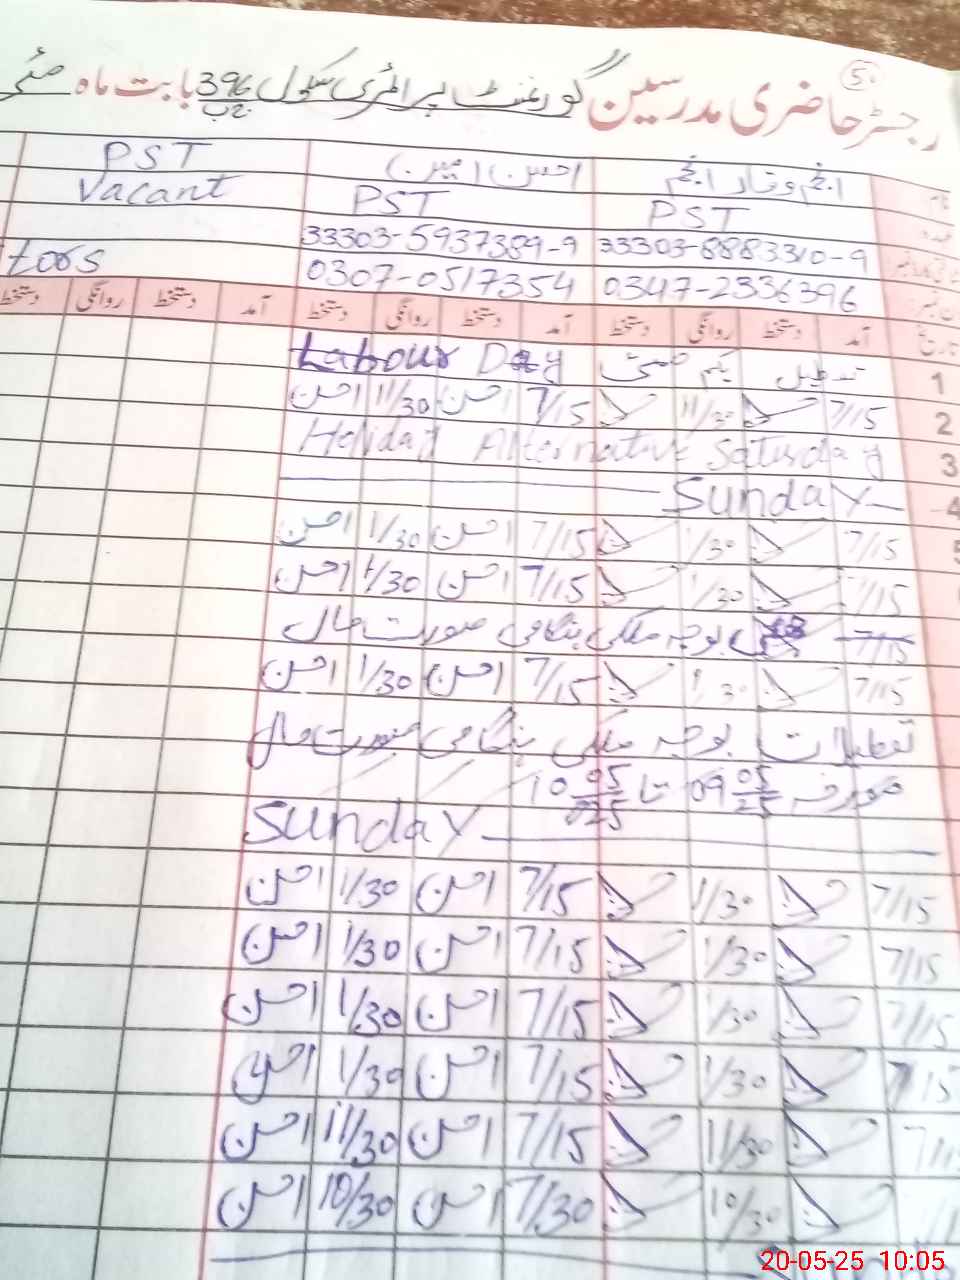 50
رجسٹر حاضری مدرسین گورنمنٹ پرائمری سکول 396 ج ب بابت ماہ مئی
نام انجم وقار انجم احسن امین PST
عہدہ PST PST Vacant
33303-8883310-9 33303-5937389-9
0347-2336396 0307-0517354
تاریخ آمد دستخط روانگی دستخط آمد دستخط روانگی دستخط آمد دستخط روانگی دستخط
1 تعطیل یکم مئی Labour Day
2 7/15 11/30 7/15 احسن 11/30 احسن
3 Holiday Alternative Saturday
4 Sunday
5 7/15 1/30 7/15 احسن 1/30 احسن
7/15 1/30 7/15 احسن 1/30 احسن
7/15 بوجہ ملکی ہنگامی صورت حال
7/15 1/30 7/15 احسن 1/30 احسن
تعطیلات بوجہ ملکی ہنگامی صورت حال
مورخہ 09 05/25 تا 10 05/025
Sunday
7/15 1/30 7/15 احسن 1/30 احسن
7/15 1/30 7/15 احسن 1/30 احسن
7/15 1/30 7/15 احسن 1/30 احسن
7/15 1/30 7/15 احسن 1/30 احسن
11/30 7/15 احسن 11/30 احسن
10/30 7/30 احسن 10/30 احسن
20-05-25 10:05